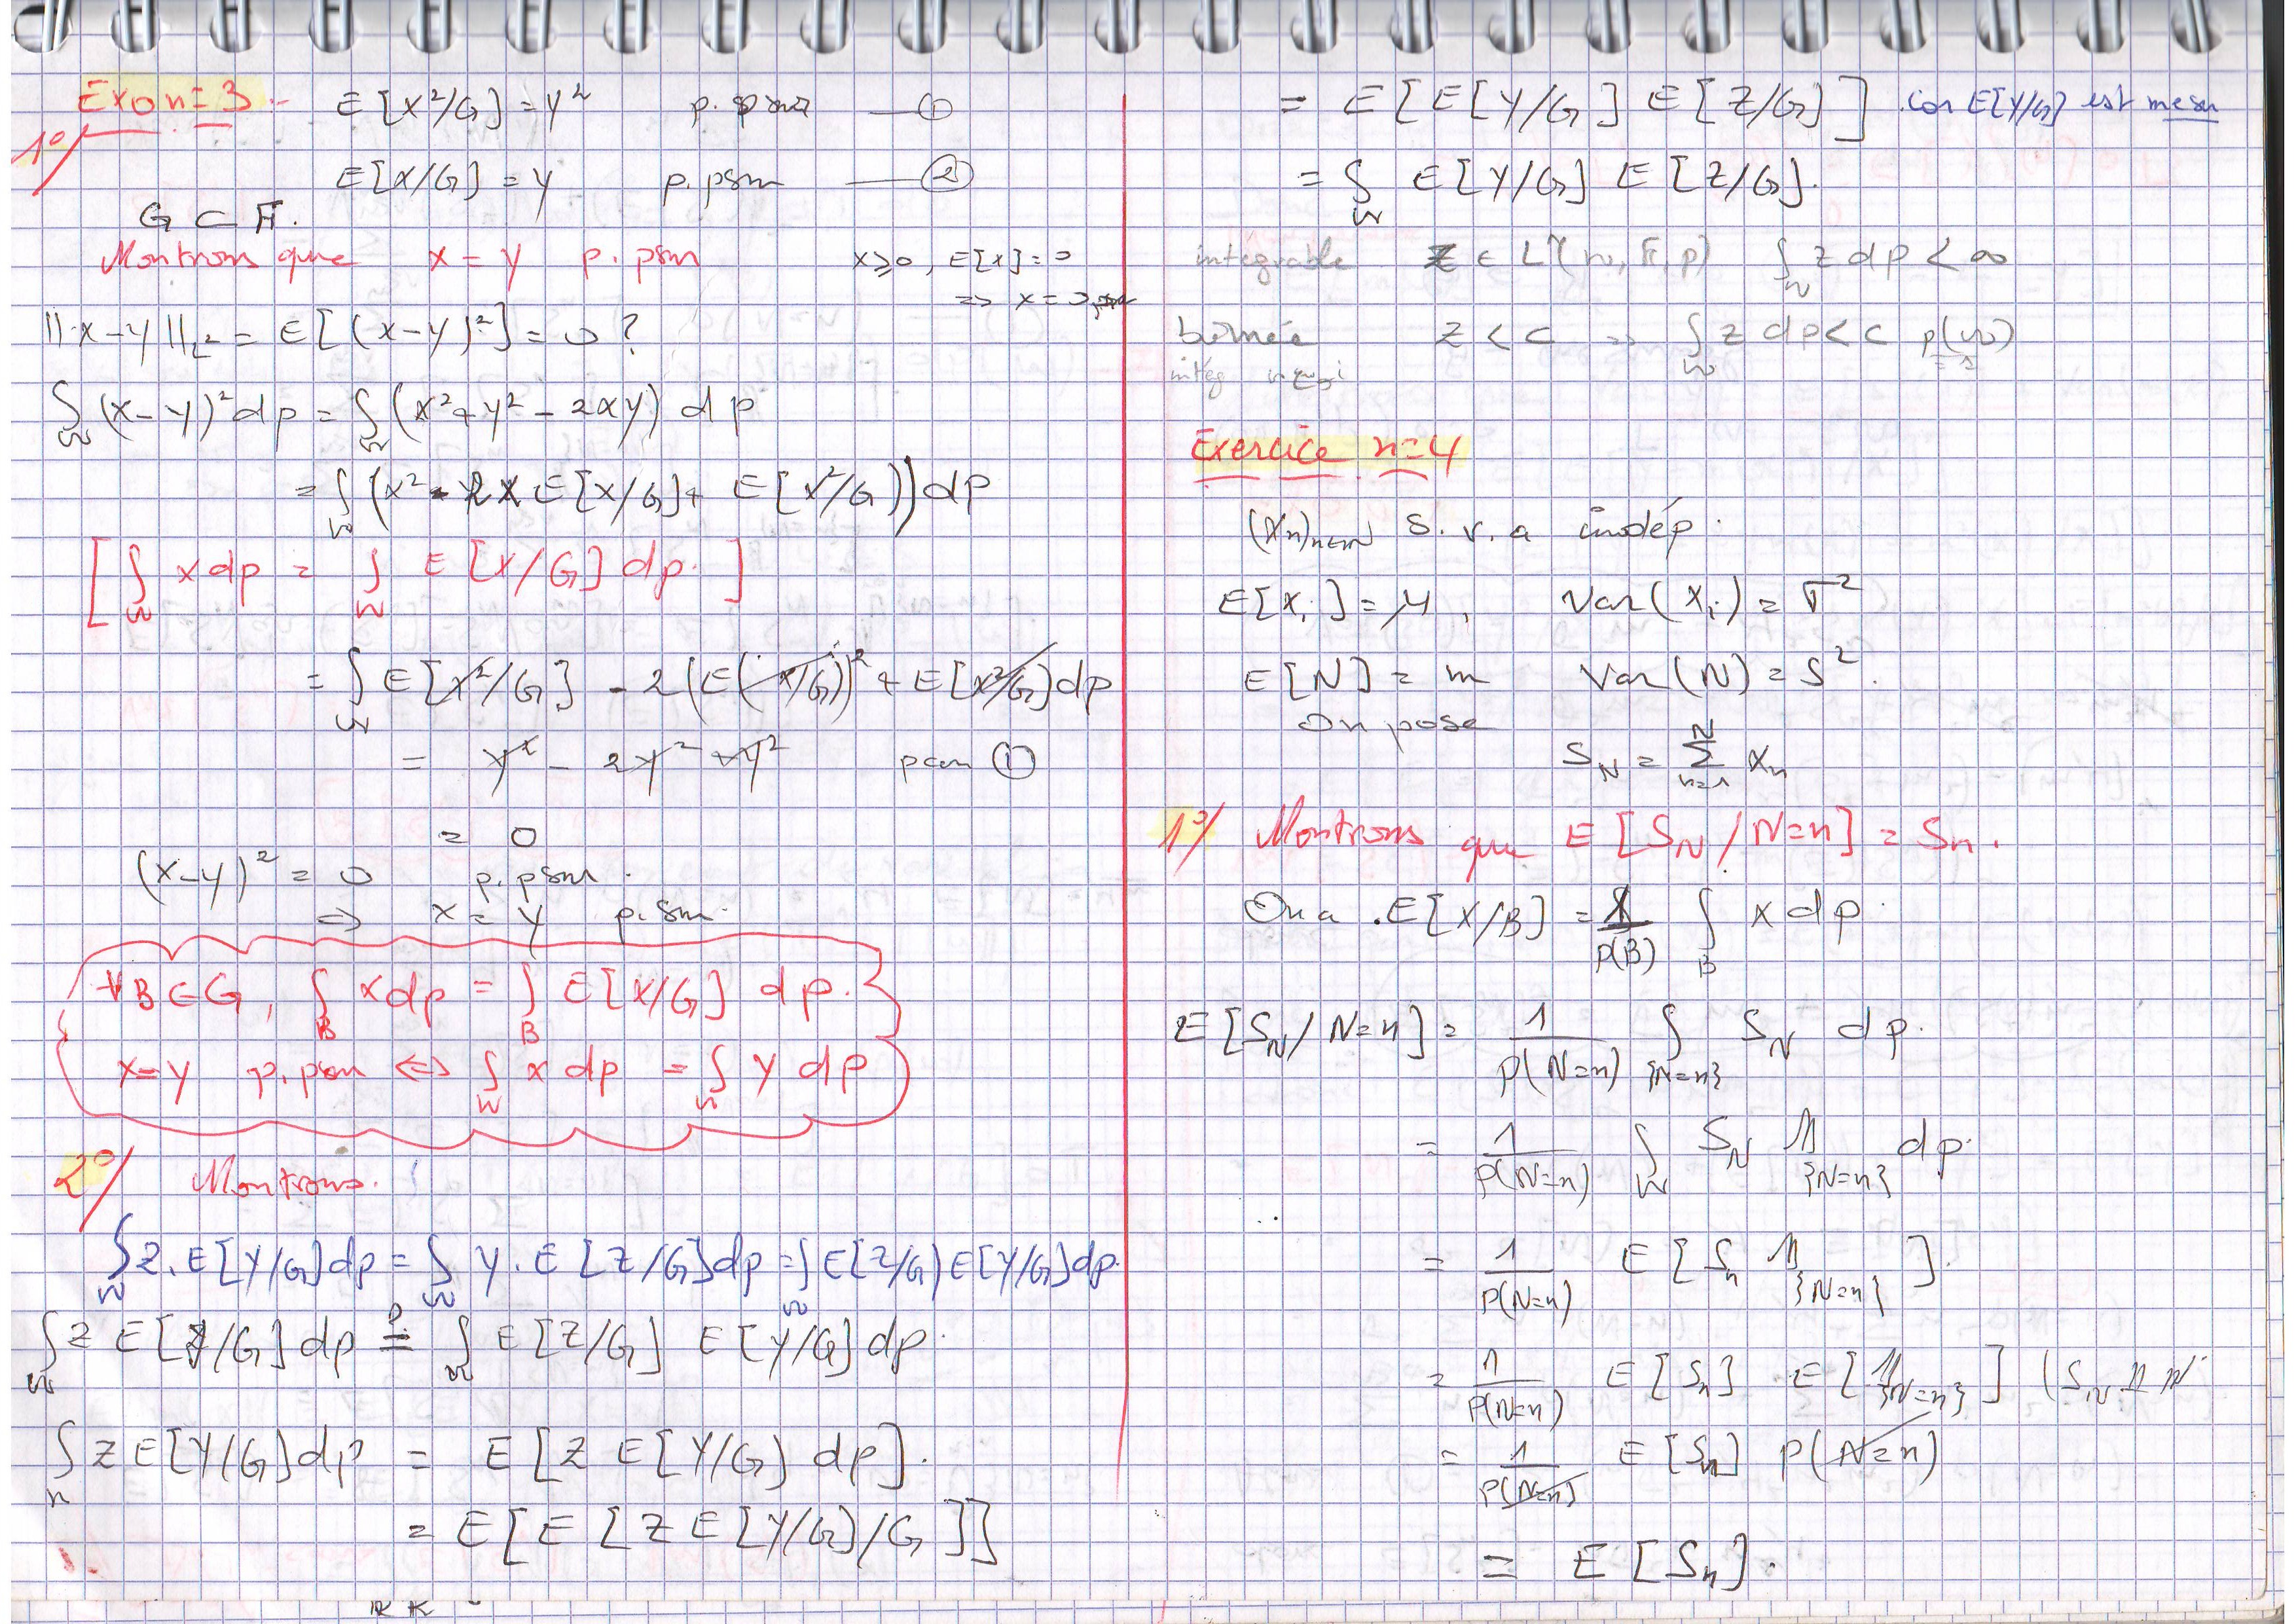 Exo n=3 -
1°/
E[X²/G] = Y² p. psm ——①
E[X/G] = Y p.psm ——②
G ⊂ F.
Montrons que X = Y p.psm
X ≥ 0, E[X] = 0
=> X = 0
||X-Y||L² = E[(X-Y)²] = 0 ?
∫_Ω (X-Y)² dp = ∫_Ω (X² + Y² - 2XY) dp
= ∫_Ω (X² - 2X E[X/G] + E[X²/G]) dp
[ ∫_Ω X dp = ∫_Ω E[X/G] dp. ]
= ∫_Ω E[X²/G] - 2(E(X/G))² + E[X²/G] dp
= Y² - 2Y² + Y² par ①
= 0
(X-Y)² = 0 p.psm.
=> X = Y p.sm.
∀B∈G, ∫_B X dp = ∫_B E[X/G] dp.
X=Y p.psm <=> ∫_Ω X dp = ∫_Ω Y dp
2°/ Montrons.
∫_Ω Z. E[Y/G] dp = ∫_Ω Y. E[Z/G] dp = ∫_Ω E[Z/G) E[Y/G] dp.
∫_Ω Z E[Y/G] dp =? ∫_Ω E[Z/G] E[Y/G] dp.
∫_Ω Z E[Y/G) dp = E[Z E[Y/G) dp].
= E[E[Z E[Y/G)/G]]
= E[E[Y/G] E[Z/G]] . car E[Y/G] est mesu
= ∫_Ω E[Y/G] E[Z/G].
integrable Z ∈ L¹(Ω, F, p) ∫_Ω Z dp < ∞
bornée Z < C => ∫_Ω Z dp < C p(Ω)
intég
Exercice n=4
(Xn)n∈IN S.v.a indép.
E[Xi] = μ, Var(Xi) = σ²
E[N] = m Var(N) = S².
On pose
S_N = Σ_{n=1}^N Xn
1°/ Montrons que E[S_N / N=n] = Sn.
On a . E[X/B] = 1/P(B) ∫_B X dp.
E[S_N / N=n] = 1/P(N=n) ∫_{N=n} S_N dp.
= 1/P(N=n) ∫_Ω S_N 1_{N=n} dp.
= 1/P(N=n) E[Sn 1_{N=n}].
= 1/P(N=n) E[Sn] E[1_{N=n}] (S_N ⊥ N
= 1/P(N=n) E[Sn] P(N=n)
= E[Sn].